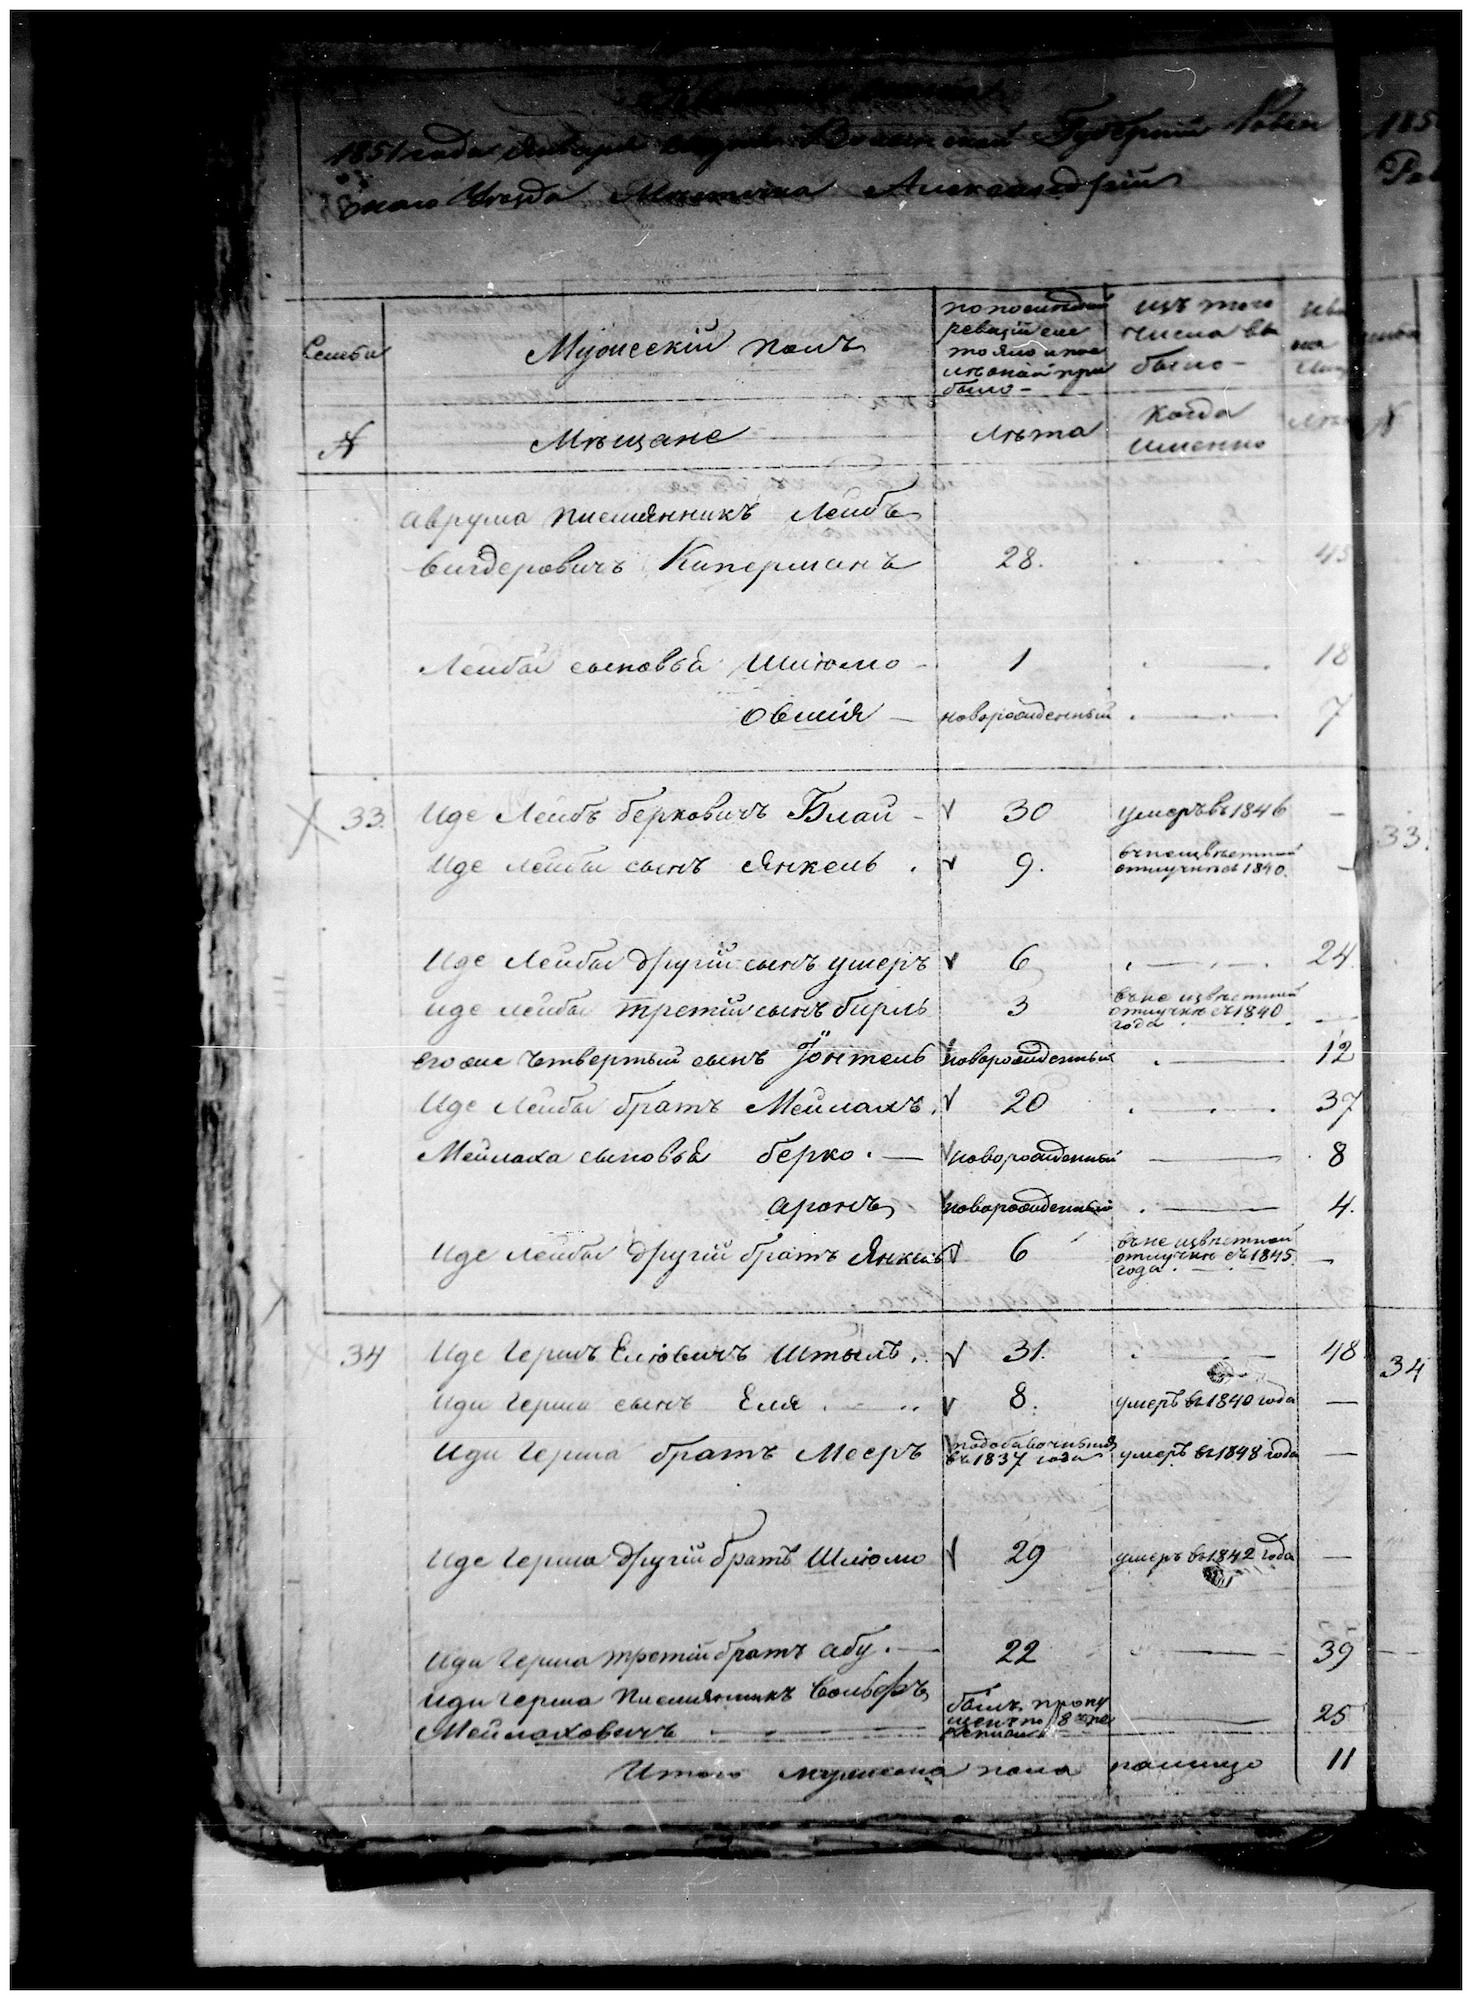 1851 года Января дня Волынской Губерніи Ровен 185
скаго Уезда Местечка Александріи Рев
Семьи
Мужескій полъ
по последней
ревизіи сос
тояло и пос
ле оной при
было -
изъ того
числа вы
было -
ныне
на
лицо
№
Мещане
Лета
Когда
именно
Лета
№
Аврума племянникъ Лейбъ
Вигдеровичъ Киперманъ 28. 45
Лейбы сыновья Шлюмо - 1 18
Овшія - новорожденный 7
33. Иде Лейбъ Берковичъ Блай - 30 умеръ въ 1846 - 33.
Иде Лейбы сынъ Янкель . 9. въ неизвестной
отлучке съ 1840. -
Иде Лейбы другій сынъ Умеръ 6 24.
Иде Лейбы третій сынъ Бирль 3 въ не известной
отлучке съ 1840
года
его же четвертый сынъ Іонтель новорожденный 12
Иде Лейбы братъ Мейлахъ. 20 37
Мейлаха сыновья Берко . - новорожденный 8
Аронъ новорожденный 4.
Иде Лейбы другій братъ Янкель 6 въ не известной
отлучке съ 1845
года -
34 Иде Гершъ Елювичъ Штыль . 31. 48 34
Иди Герша сынъ Еля 8. умеръ въ 1840 года -
Иди Герша братъ Мееръ подобавочный
въ 1837 года умеръ въ 1848 года -
Иде Герша другій братъ Шлюмо 29 умеръ въ 1842 года -
Иди Герша третій братъ Абу . - 22 39
Иди Герша племянникъ Вольфъ
Мейлаховичъ
былъ пропу
щенъ по 8 ре
визіи 25
Итого мужеска пола налицо 11